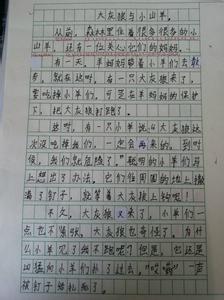 大灰狼与小山羊。
从前，森林里住着很多很多的小
山羊，还有一位关心它们的妈妈。
有一天，羊妈妈带着小羊们去
，就在这时，有一只大灰狼来了，
要吃掉小羊们，可是在羊妈妈的保护
下，把大灰狼打跑了。
这时，有一只小羊说：大灰狼这
次没吃掉我们，一定会再来的，到时
候，我们就危险了。
上想出了办法，它们在周围的地上撒
满了钉子，就等着大灰狼上钩啦！
不久，大灰狼又来了，小羊们一
点也不紧张，大灰狼也奇怪了，为什
么小羊见了我不跑呢？但是，它还是
凶猛向小羊们扑了过去，"哎哟"一声
被钉子给扎死了。